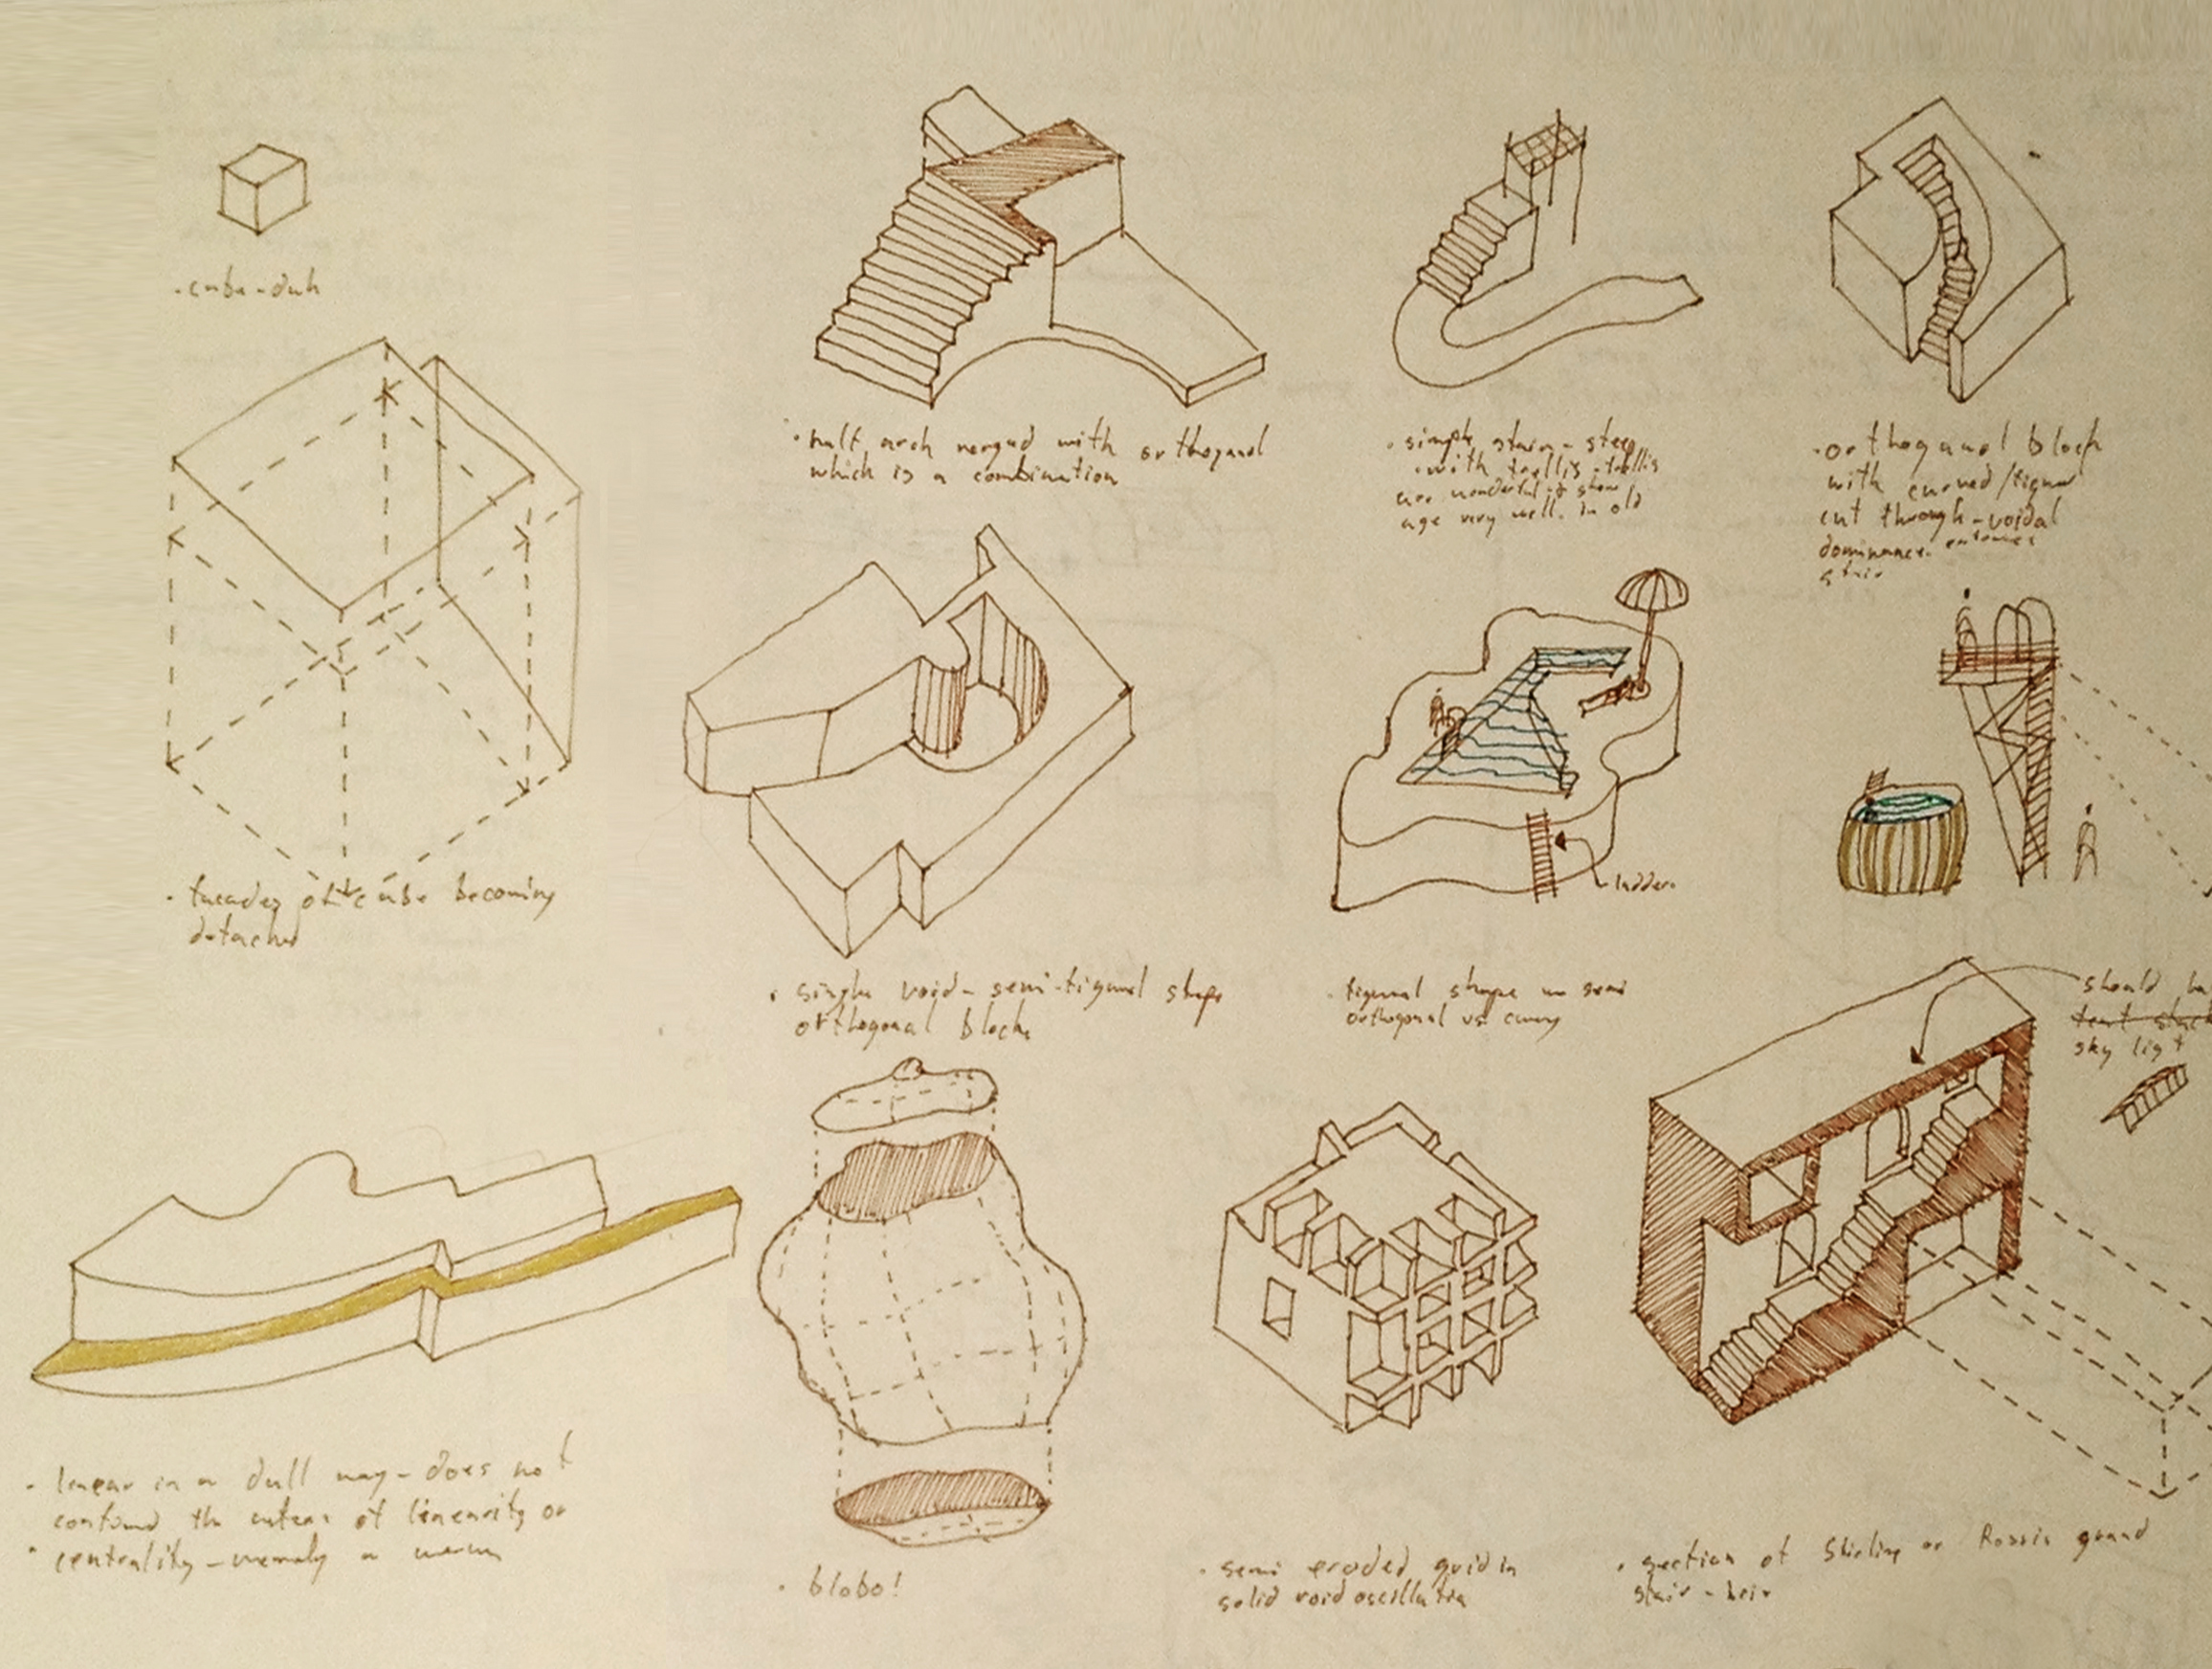 · cube - duh
· half arch merged with orthogonal
which is a combination
· simple stair - steep
· with trellis - trellis
are wonderful
age very well. in old
· orthogonal block
with curved/figural
cut through - voidal
dominance. entrance
stair
· facades of cube becoming
detached
· single void - semi-figural shape
orthogonal block
ladder.
· figural shape semi
orthogonal vs. curvy
should
sky light
· linear in a dull way - does not
confound the of linearity or
centrality - merely a
· blobo!
· semi eroded grid in
solid void oscillation
· section of Stirling or Rossi's grand
stair -